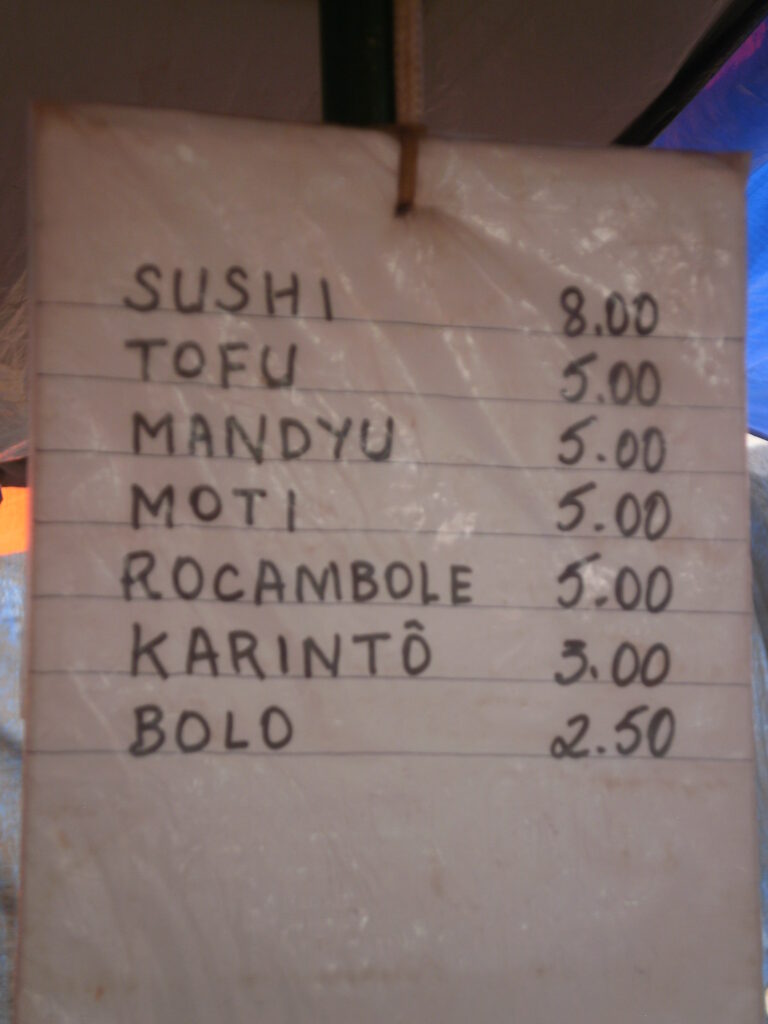 SUSHI 8.00
TOFU 5.00
MANDYU 5.00
MOTI 5.00
ROCAMBOLE 5.00
KARINTÔ 3.00
BOLO 2.50